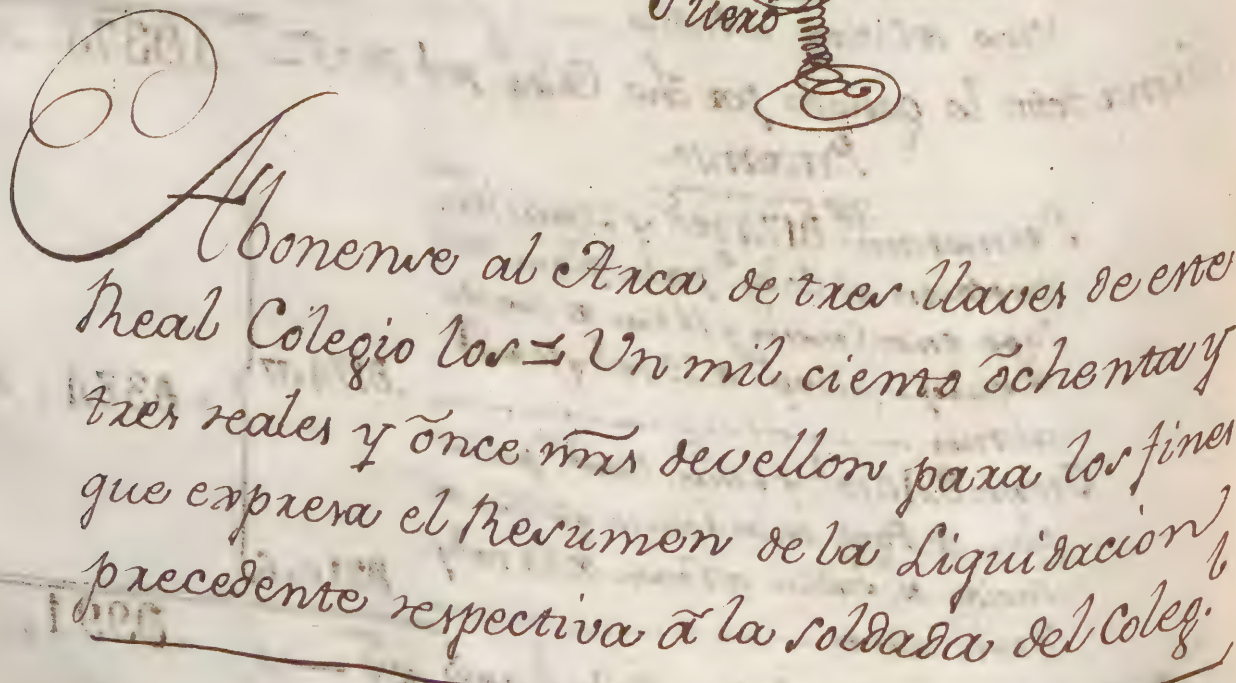 Abonense al Arca de tres llaves de este
Real Colegio los = Un mil ciento õchenta y
tres reales y õnce mrs devellon para los fines
que expresa el Resumen de la Liquidacion
precedente respectiva ã la soldada del Coleg.l